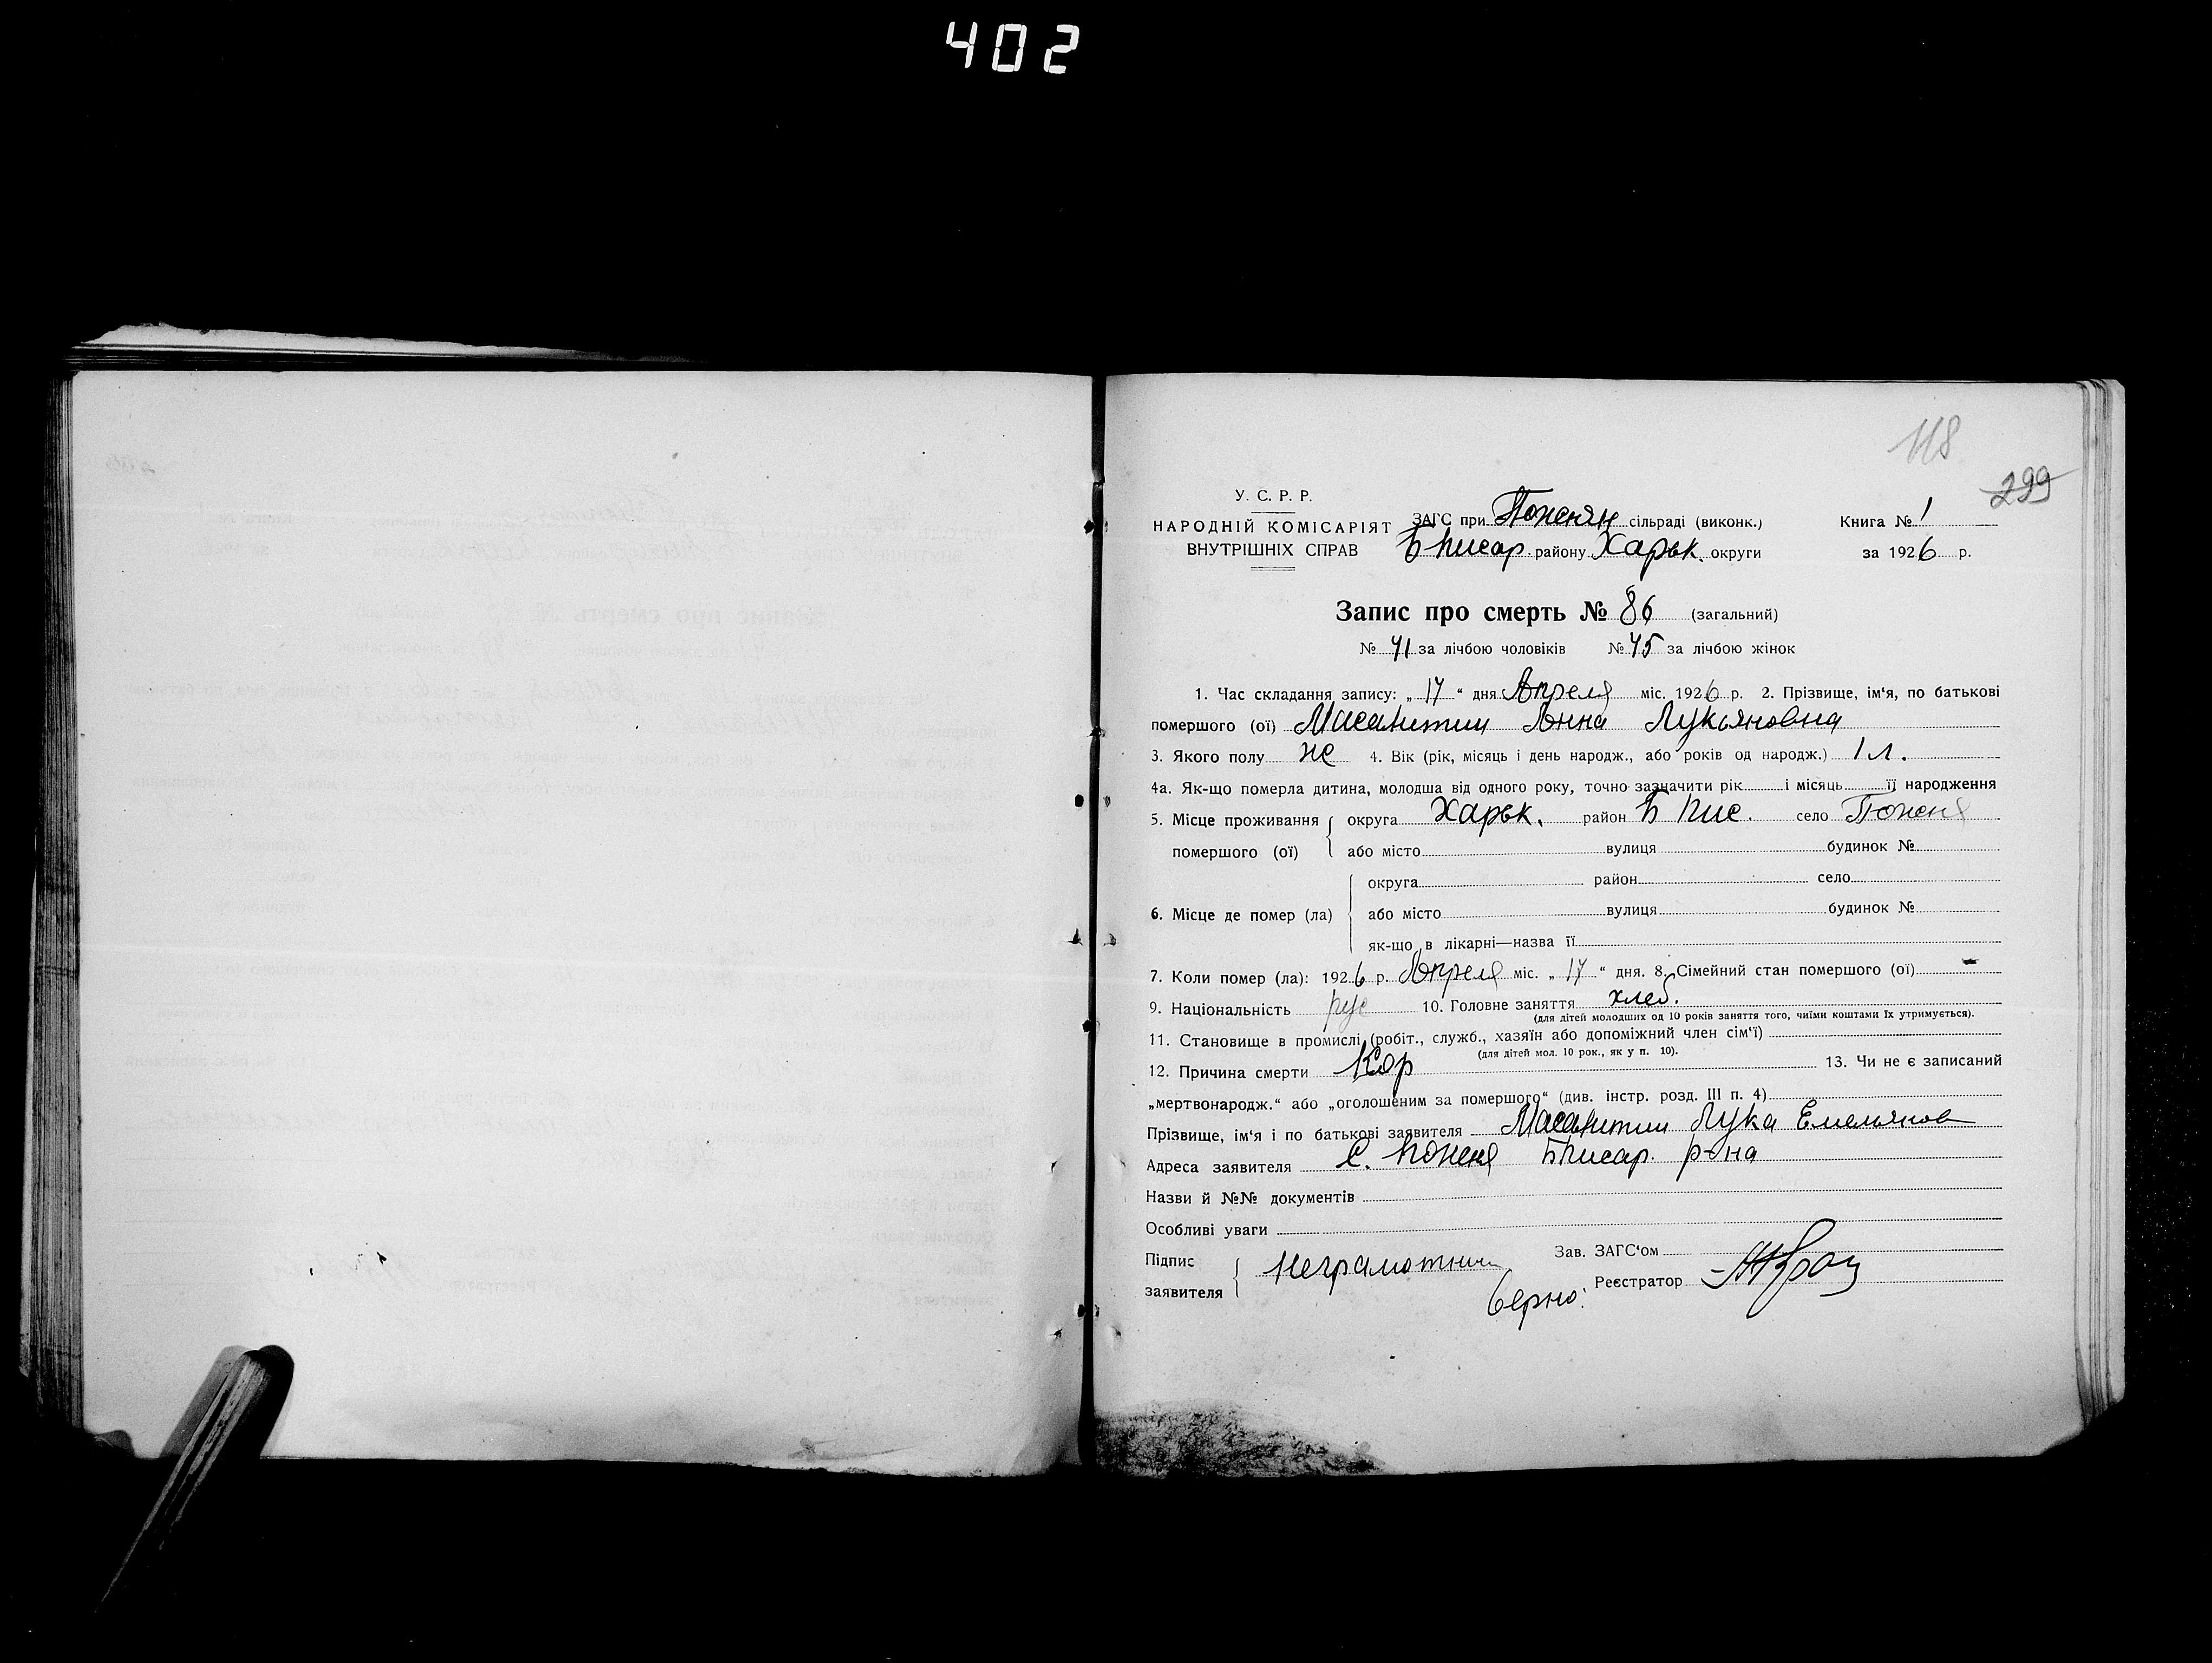 402
118
299
У. С. Р. Р.
НАРОДНІЙ КОМІСАРІЯТ
ВНУТРІШНІХ СПРАВ
ЗАГС при Пожнян сільраді (виконк.)
Б Писар. району Харьк. округи
Книга № 1
за 1926 р.
Запис про смерть № 86 (загальний)
№ 41 за лічбою чоловіків № 45 за лічбою жінок
1. Час складання запису: „ 17 “ дня Апреля міс. 1926 р. 2. Прізвище, ім‘я, по батькові
помершого (ої) Анна Лукьяновна
3. Якого полу ж 4. Вік (рік, місяць і день народж., або років од народж.) 1 л.
4а. Як-що померла дитина, молодша від одного року, точно зазначити рік і місяць її народження
5. Місце проживання округа Харьк. район Б Пис. село Пожня
помершого (ої) або місто вулиця будинок №
округа район село
6. Місце де помер (ла) або місто вулиця будинок №
як-що в лікарні—назва її
7. Коли помер (ла): 1926 р. Апреля міс. „ 17 “ дня. 8. Сімейний стан помершого (ої) -
9. Національність рус 10. Головне заняття хлеб.
(для дітей молодших од 10 років заняття того, чиїми коштами їх утримується).
11. Становище в промислі (робіт., служб., хазяїн або допоміжний член сім‘ї)
(для дітей мол. 10 рок., як у п. 10).
12. Причина смерти Кор 13. Чи не є записаний
„мертвонародж.“ або „оголошеним за помершого“ (див. інстр. розд. III п. 4)
Прізвище, ім‘я і по батькові заявителя Лука Емельянов
Адреса заявителя С. Пожня БПисар. р-она
Назви й №№ документів
Особливі уваги
Підпис
заявителя
неграмотний
Зав. ЗАГС‘ом
Верно:
Реєстратор